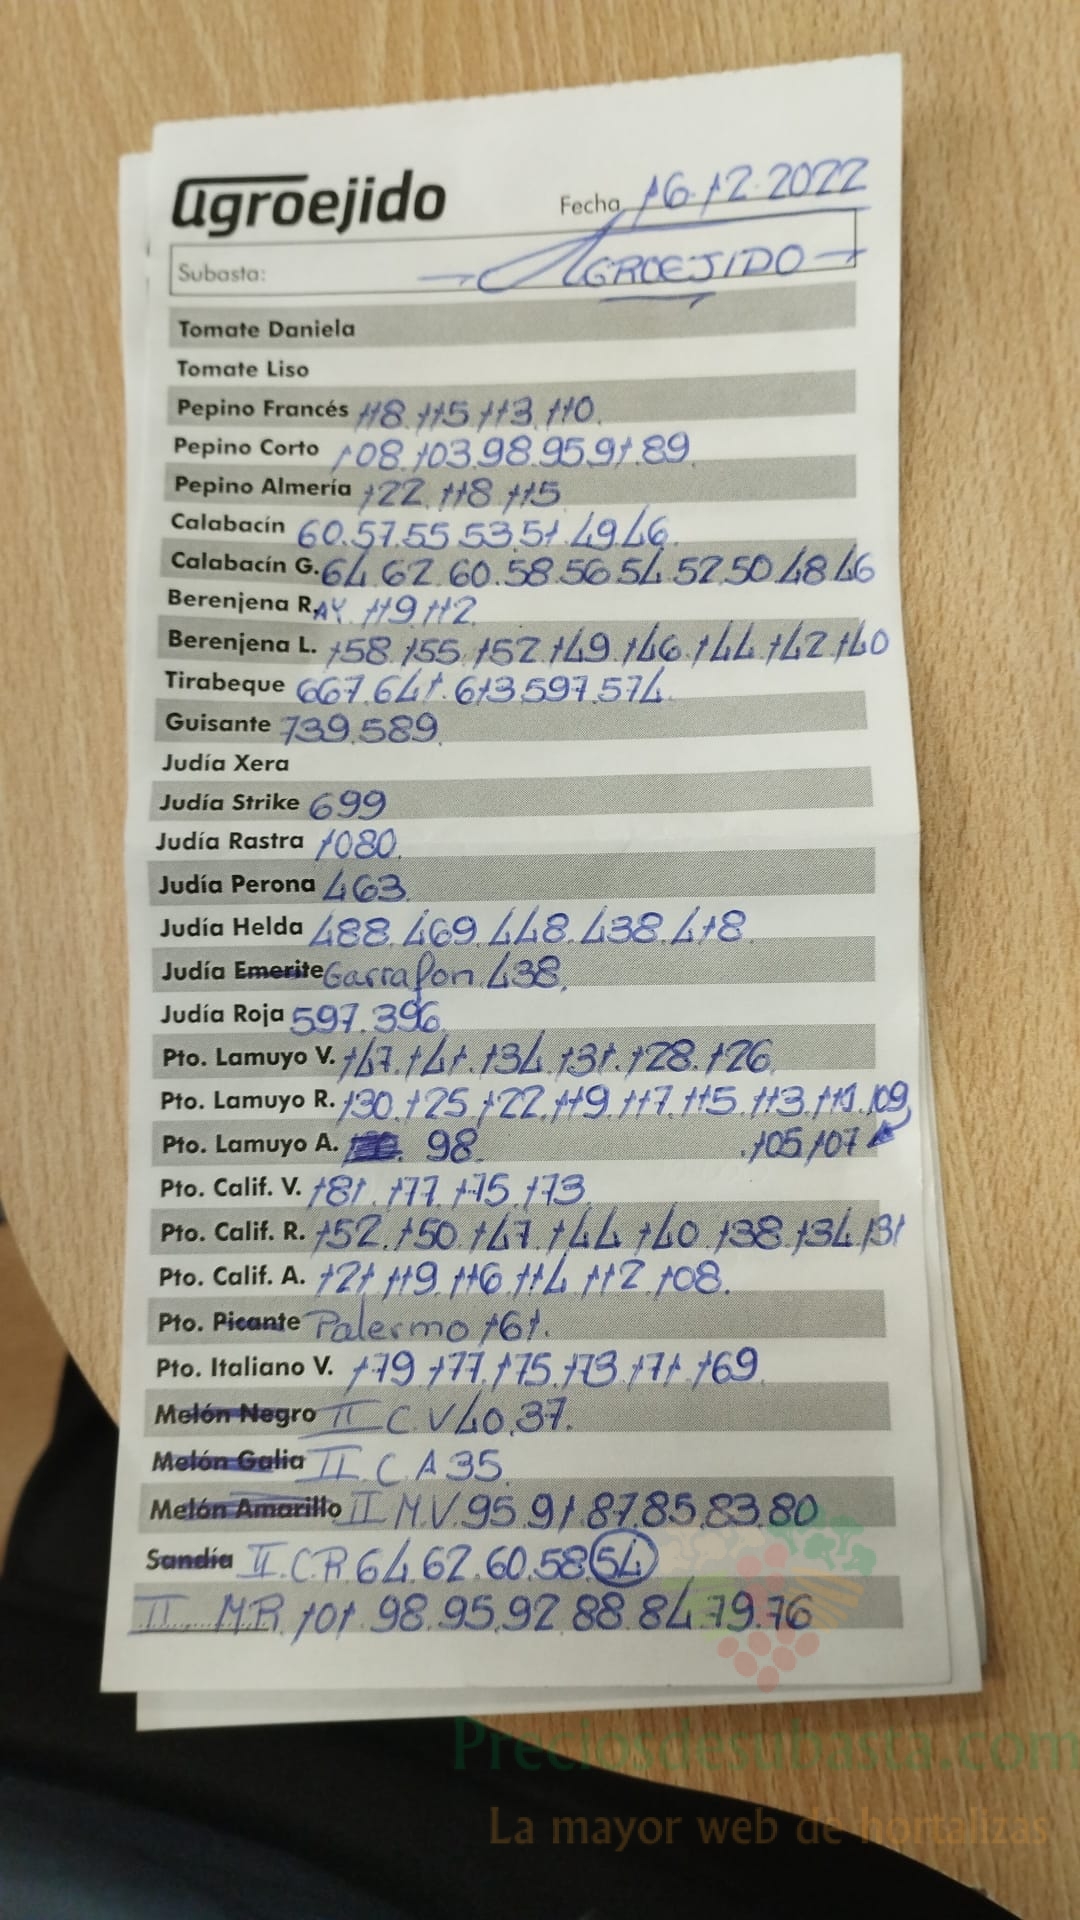 agroejido
Fecha 16.12.2022
Subasta: AGROEJIDO
Tomate Daniela
Tomate Liso
Pepino Francés 118.115.113.110.
Pepino Corto 108.103.98.95.91.89
Pepino Almería 122.118.115
Calabacín 60.57.55.53.51.49.46.
Calabacín G. 64.62.60.58.56.54.52.50.48.46
Berenjena RAY. 119.112.
Berenjena L. 158.155.152.149.146.144.142.140
Tirabeque 667.641.613.597.574.
Guisante 739.589.
Judía Xera
Judía Strike 699
Judía Rastra 1080.
Judía Perona 463.
Judía Helda 488.469.448.438.418.
Judía Emerite Garrafon.438.
Judía Roja 597.396.
Pto. Lamuyo V. 147.141.134.131.128.126.
Pto. Lamuyo R. 130.125.122.119.117.115.113.111.109,
Pto. Lamuyo A. 98. .105.107
Pto. Calif. V. 181.177.175.173.
Pto. Calif. R. 152.150.147.144.140.138.134.131
Pto. Calif. A. 121.119.116.114.112.108.
Pto. Picante Palermo 161.
Pto. Italiano V. 179.177.175.173.171.169.
Melón Negro II C.V 40.37.
Melón Galia II.C.A 35.
Melón Amarillo II M.V.95.91.87.85.83.80
Sandía II.C.R.64.62.60.58.54
II M.R. 101.98.95.92.88.84.79.76
Preciosdesubasta.com
La mayor web de hortalizas